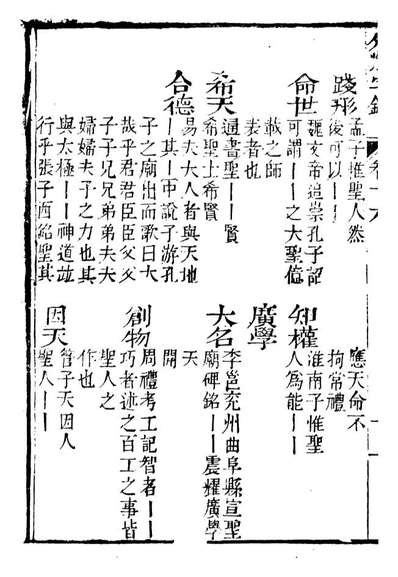 卷十六
踐形
孟子惟聖人然
後可以——
命世
魏文帝追崇孔子詔
可謂——之大聖億
載之師
表者也
希天
通書聖——賢
希聖士希賢
合德
易夫大人者與天地
—其—中說子游孔
子之廟出而歌曰大
哉乎君君臣臣父父
子子兄兄弟弟夫夫
婦婦夫子之力也其
與太極——神道竝
行乎張子西銘聖其
應天命不
拘常禮
知權
淮南子惟聖
人爲能——
廣學
大名
李邕兗州曲阜縣宣聖
廟碑銘——震耀廣學
天
開
創物
周禮考工記智者——
巧者述之百工之事皆
聖人之
作也
因天
管子天因人
聖人——